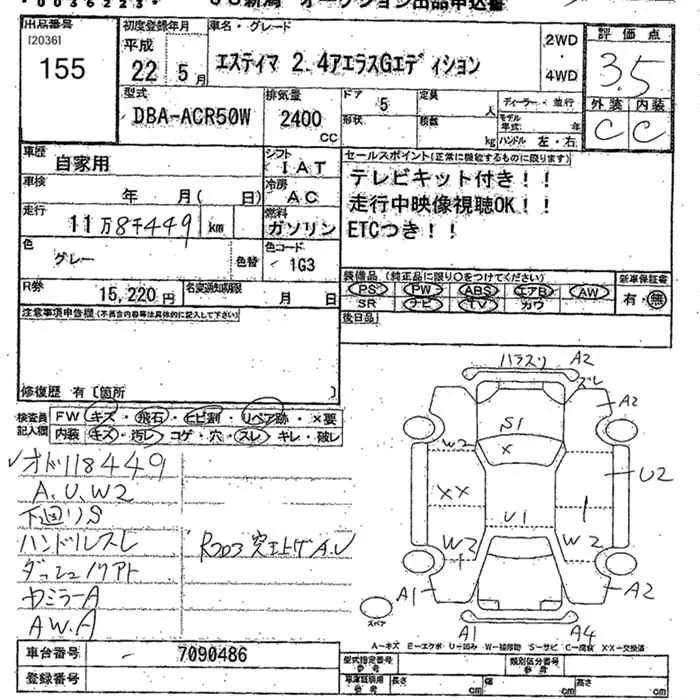 オークション出品申込書
出品番号
[2036]
155
初度登録年月
平成
22 5月
車名・グレード
エスティマ 2.4アエラスGエディション
2WD
・
4WD
評価点
3.5
外装 内装
C C
型式
DBA-ACR50W
排気量
2400
CC
ドア 5
定員 人
形状
積数 kg
ディーラー・並行
モデル年式: 年
ハンドル 左・右
車歴
自家用
シフト
IAT
車検
年 月( 日)
冷房
AC
走行
11万8千449 km
燃料
ガソリン
色
グレー
色替
色コード
1G3
R券
15,220円
名変通知期限
月 日
セールスポイント(正常に機能するものに限ります)
テレビキット付き!!
走行中映像視聴OK!!
ETCつき!!
装備品(純正品に限り○をつけてください)
PS PW ABS エアB AW
SR ナビ TV カワ
新車保証書
有・無
後日品
注意事項申告欄(不具合内容等は具体的に記入して下さい)
修復歴 有〔箇所 〕
検査員記入欄
FW キズ・飛石・ヒビ割・リペア跡・×要
内装 キズ・汚レ・コゲ・穴・スレ・キレ・破レ
オド118449
A、U、W2
下廻りS
ハンドルスレ
ダッシュノリアト
A
AW、A
R203 突上げA、U
A2
ズレ
A2
S1
W2
X
XX
U2
U1
W2
W2
A1
A2
A1
A4
スペア
A-キズ E-エクボ U-凹み W-補修跡 S-サビ C-腐食 XX-交換済
車台番号
7090486
登録番号
型式指定番号
類別区分番号
長さ cm 幅 cm 高さ cm